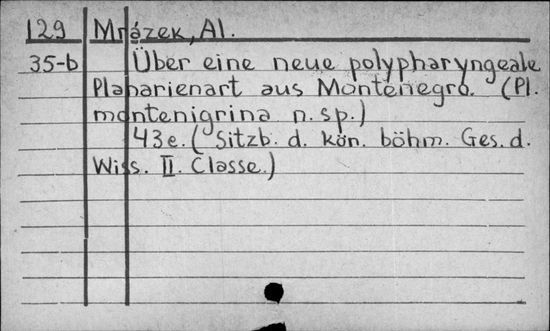 129 Mrázek, Al.
35-b Über eine neue polypharyngeale
Planarienart aus Montenegro. (Pl.
montenigrina n.sp.)
43e. (Sitzb. d. kön. böhm. Ges. d.
Wiss. II. Classe.)